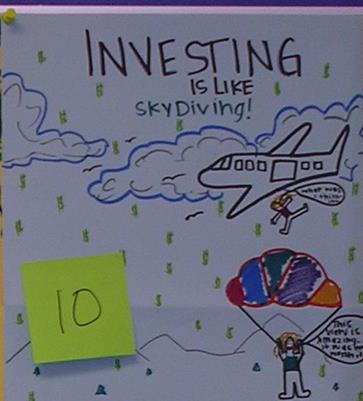 INVESTING
IS LIKE
SKYDIVING!
WHAT WAS
I THINK
10
THIS
VIEW IS
AMAZING.
IT WAS
WORTH IT